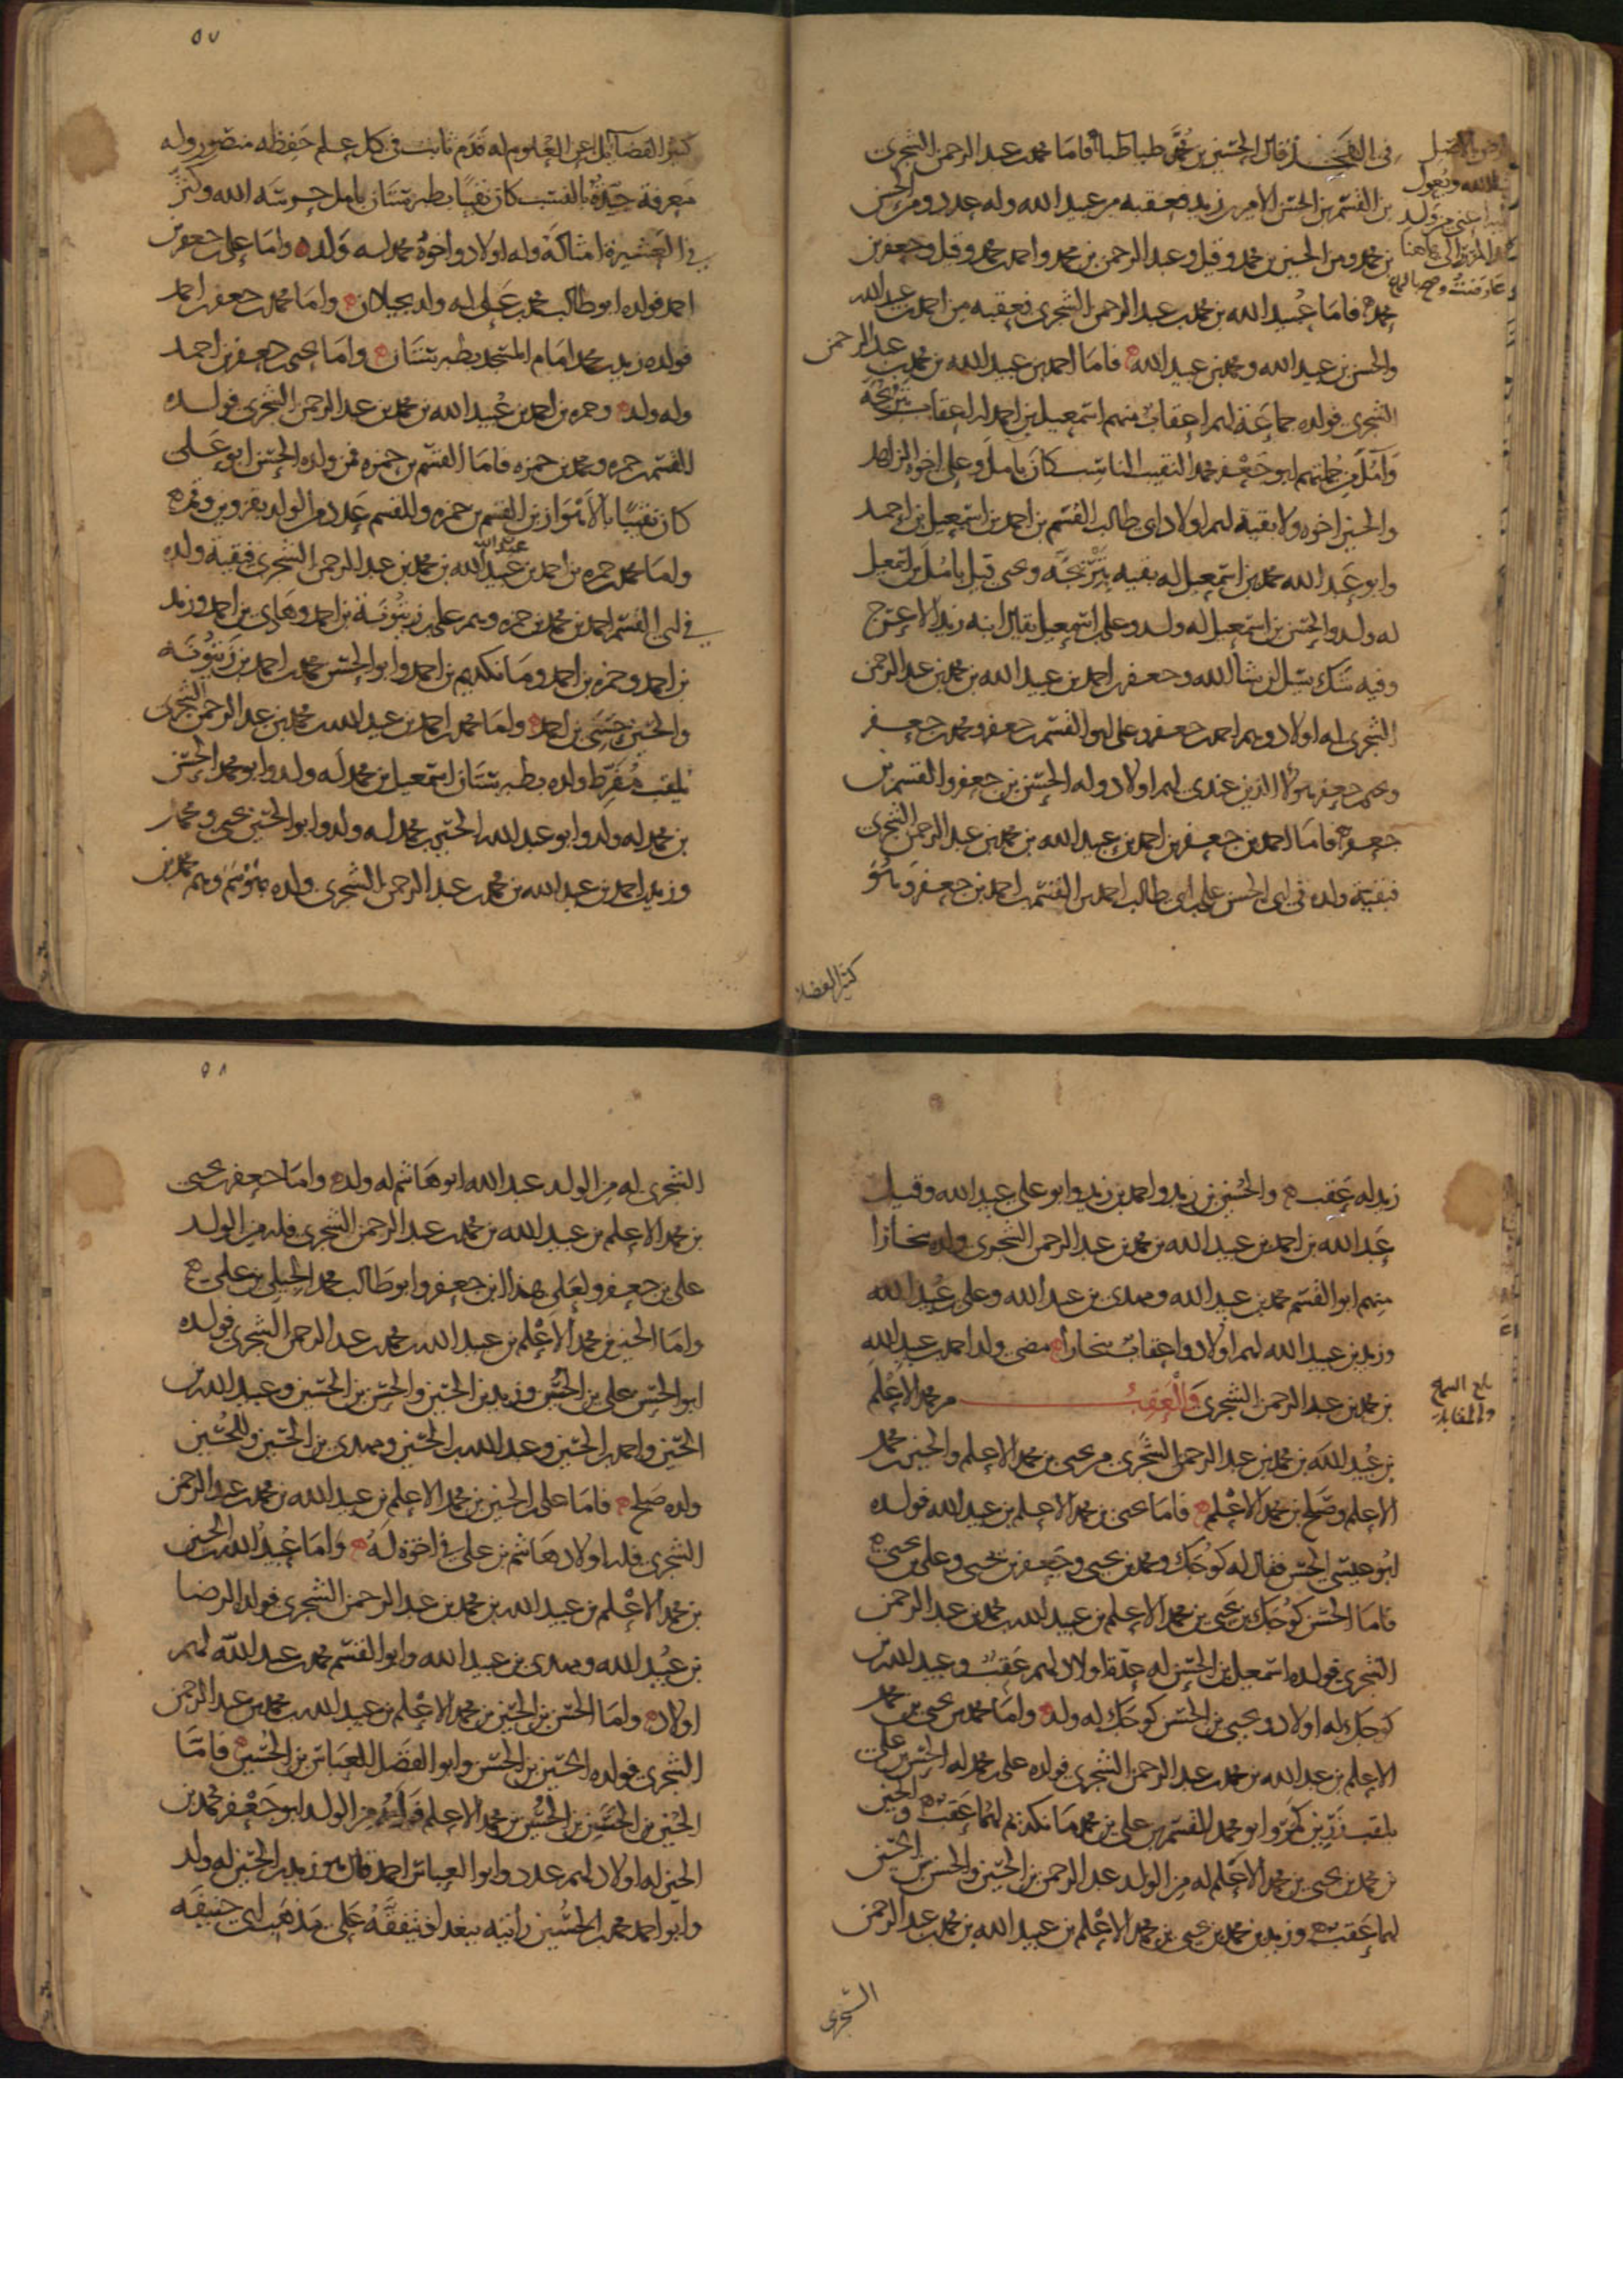 في الفخذ قال الحسين بن طباطبا فاما محمد بن عبد الرحمن الشجري
بن القسم بن الحسن الامير بن زيد فعقبه من عبيد الله وله عدد ومن الحسن
بن محمد ومن الحسين بن محمد وقيل وعبد الرحمن بن محمد واحمد بن محمد وقيل وجعفر بن
محمد فاما عبيد الله بن محمد بن عبد الرحمن الشجري فعقبه من احمد بن عبيد الله
والحسن بن عبيد الله ومحمد بن عبيد الله فاما احمد بن عبيد الله بن محمد بن عبد الرحمن
الشجري فولده جماعة لهم اعقاب منهم اسمعيل بن احمد له اعقاب
وآمل فمن جملتهم ابو جعفر محمد النقيب الناسب كان بآمل وعلي اخوه الزاهد
والحسين اخوه ولا بقية لهم اولاد ابي طالب القسم بن احمد بن اسمعيل بن احمد
وابو عبد الله محمد بن اسمعيل له بقية ويحيى قيل بآمل بن اسمعيل
له ولد والحسن بن اسمعيل له ولد وعلي بن اسمعيل يقال ابنه زيد الاعرج
وفيه شك يسأل ان شا الله وجعفر بن احمد بن عبيد الله بن محمد بن عبد الرحمن
الشجري له اولاد وهم احمد بن جعفر وعلي ابو القسم بن جعفر ومحمد بن جعفر
وهم جعفر هولا الذين عندي لهم اولاد وله الحسين بن جعفر والقسم بن
جعفر فاما احمد بن جعفر بن احمد بن عبيد الله بن محمد بن عبد الرحمن الشجري
فبقية ولده في ابي الحسن علي بن ابي طالب احمد بن القسم بن احمد بن جعفر وهو
كثير الفضا
٥٧
كثير الفضآئل العلوم له قدم ثابت في كل علم حفظه متصور وله
معرفة جيدة بالنسب كان نقيبا بطبرستان بآمل حرسه الله وكثر
في العشيرة امثاله وله اولاد واخوه محمد له ولد واما علي بن جعفر بن
احمد فولده ابو طالب محمد بن علي له ولد بجيلان واما محمد بن جعفر بن احمد
فولده زيد بن محمد امام المسجد بطبرستان واما يحيى بن جعفر بن احمد
وله ولد وحمزه بن احمد بن عبيد الله بن محمد بن عبد الرحمن الشجري فولده
القسم بن حمزه ومحمد بن حمزه فاما القسم بن حمزه فمن ولده الحسن ابو علي
كان نقيبا بالاهواز بن القسم بن حمزه وللقسم عدد من الولد بقزوين وغيره
واما محمد بن حمزه بن احمد بن عبيد الله بن محمد بن عبد الرحمن الشجري فبقية ولده
في ابي القسم احمد بن محمد بن حمزه وهم علي بن زيتونة بن احمد وهادي بن احمد وزيد
بن احمد وحمزه بن احمد ومانكديم بن احمد وابو الحسن محمد بن احمد بن زيتونة
والحسين بن احمد واما محمد بن احمد بن عبيد الله بن محمد بن عبد الرحمن الشجري
يلقب ولده بطبرستان اسمعيل بن محمد له ولد وابو محمد الحسن
بن محمد له ولد وابو عبد الله الحسين بن محمد له ولد وابو الحسين يحيى بن محمد
وزيد بن احمد بن عبيد الله بن محمد بن عبد الرحمن الشجري ولده وهم محمد بن
زيد له عقب والحسين بن زيد واحمد بن زيد وابو علي عبيد الله وقيل
عبد الله بن احمد بن عبيد الله بن محمد بن عبد الرحمن الشجري ولده بخارا
منهم ابو القسم محمد بن عبيد الله ومهدي بن عبيد الله وعلي بن عبيد الله
وزيد بن عبيد الله لهم اولاد واعقاب ببخارا مضى ولد احمد بن عبيد الله
بن محمد بن عبد الرحمن الشجري والعقب من محمد الاعلم
بلغ السماع
والمقابلة
بن عبيد الله بن محمد بن عبد الرحمن الشجري من يحيى بن محمد الاعلم والحسين بن محمد
الاعلم وصلح بن محمد الاعلم فاما يحيى بن محمد الاعلم بن عبيد الله فولده
ابو عيسى الحسن فقال له كوجك ومحمد بن يحيى وجعفر بن يحيى وعلي بن يحيى
فاما الحسن كوجك بن يحيى بن محمد الاعلم بن عبيد الله بن محمد بن عبد الرحمن
الشجري فولده اسمعيل بن الحسن له عدة اولاد لهم عقب وعبيد الله بن
كوجك له اولاد ويحيى بن الحسن كوجك له ولد واما محمد بن يحيى بن محمد
الاعلم بن عبيد الله بن محمد بن عبد الرحمن الشجري فولده علي بن محمد له الحسن بن علي
يلقب وابو محمد القسم بن علي بن محمد مانكديم لهما عقب والحسين
بن محمد بن يحيى بن محمد الاعلم له من الولد عبد الرحمن بن الحسين والحسن بن الحسين
لهما عقب وزيد بن محمد بن يحيى بن محمد الاعلم بن عبيد الله بن محمد بن عبد الرحمن
الشجري
٥٨
الشجري له من الولد عبد الله ابو هاشم له ولد واما جعفر بن يحيى
بن محمد الاعلم بن عبيد الله بن محمد بن عبد الرحمن الشجري فله من الولد
علي بن جعفر ولعلي هذا ابن جعفر وابو طالب محمد الجيلي بن علي
واما الحسين بن محمد الاعلم بن عبيد الله بن محمد بن عبد الرحمن الشجري فولده
ابو الحسن علي بن الحسين وزيد بن الحسين والحسن بن الحسين وعبيد الله بن
الحسين واحمد بن الحسين وعبد الله بن الحسين ومهدي بن الحسين وللحسين
ولده صلح فاما علي بن الحسين بن محمد الاعلم بن عبيد الله بن محمد بن عبد الرحمن
الشجري فله اولاد هاشم بن علي في اخوة له واما عبيد الله بن الحسين
بن محمد الاعلم بن عبيد الله بن محمد بن عبد الرحمن الشجري فولده الرضا
بن عبيد الله ومهدي بن عبيد الله وابو القسم محمد بن عبيد الله لهم
اولاد واما الحسن بن الحسين بن محمد الاعلم بن عبيد الله بن محمد بن عبد الرحمن
الشجري فولده الحسين بن الحسن وابو الفضل العباس بن الحسين فاما
الحسين بن الحسن بن الحسين بن محمد الاعلم فولده من الولد ابو جعفر محمد بن
الحسين له اولاد لهم عدد وابو العباس احمد وزيد بن الحسين له ولد
وابو احمد محمد بن الحسين رأيته ببغداد يتفقه على مذهب ابي حنيفة